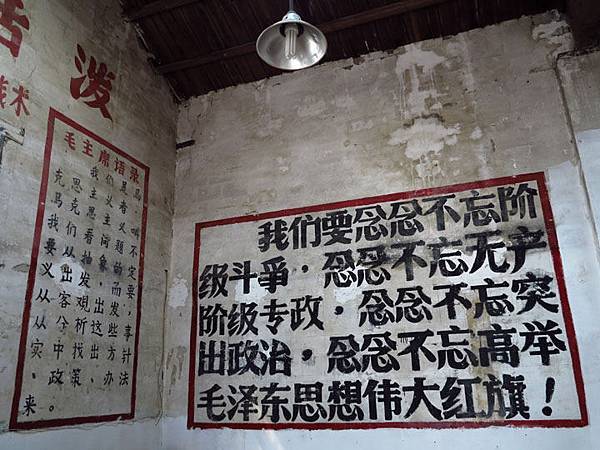 泼
术
毛主席语录
我们是马
克思主义者，
马克思主义叫
我们看问题不
要从抽象的定
义出发，而要
从客观出发，
从分析这些事
实中找出方针
、政策、办法
来。
我们要念念不忘阶
级斗争，念念不忘无产
阶级专政，念念不忘突
出政治，念念不忘高举
毛泽东思想伟大红旗！